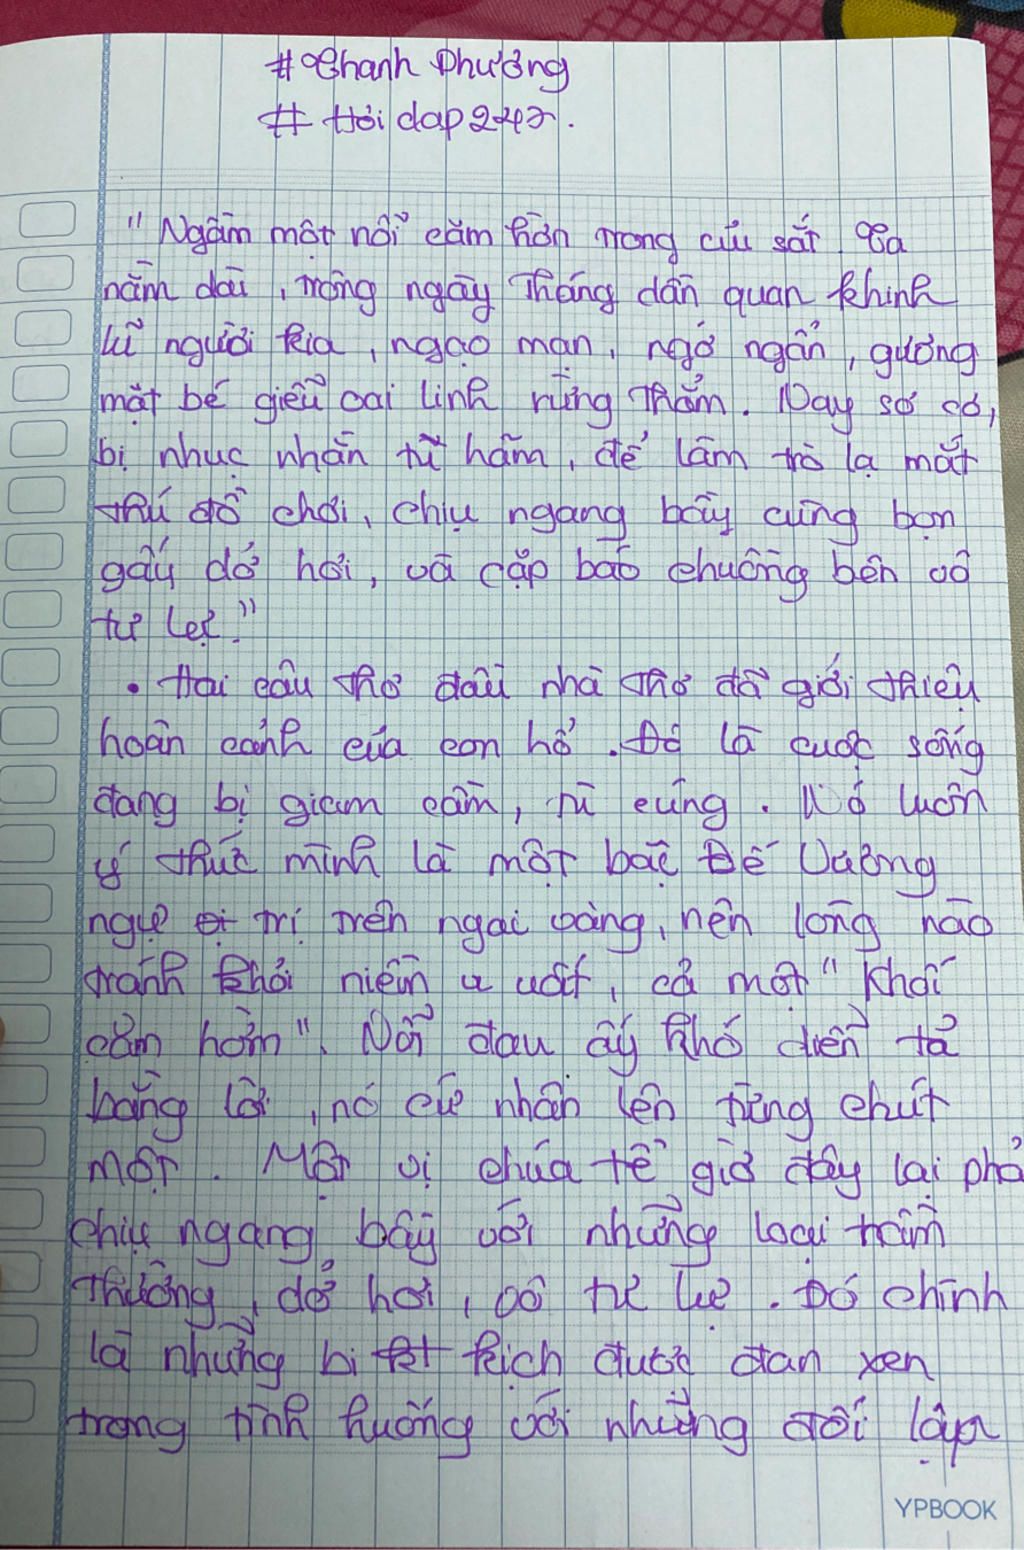 # Thanh Phương
# Hỏi dap 247.
"Ngậm một nỗi căm hờn trong cũi sắt Ta
nằm dài, trông ngày tháng dần quan khinh
lũ người kia, ngạo mạn, ngớ ngẩn, gương
mặt bé giễu oai linh rừng thẳm. Nay sơ cơ,
bị nhục nhằn tù hãm, để làm trò lạ mắt
thứ đồ chơi, chịu ngang bầy cùng bọn
gấu dở hơi, và cặp báo chuồng bên vô
tư lẹ."
• Hai câu thơ đầu nhà thơ đã giới thiệu
hoàn cảnh của con hổ. Đó là cuộc sống
đang bị giam cầm, tù cúng. Nó luôn
ý thức mình là một bậc Đế Vương
ngự trị trên ngai vàng, nên lòng nào
tránh khỏi niềm u uất, cả một "Khối
căm hờn". Nỗi đau ấy khó diễn tả
bằng lời, nó cứ nhân lên từng chút
một. Một vị chúa tể giờ đây lại phả
chịu ngang bầy với những loại tầm
thường, dở hơi, vô tư lự. Đó chính
là những bi kịch được đan xen
trong tình huống với những đối lập
YPBOOK